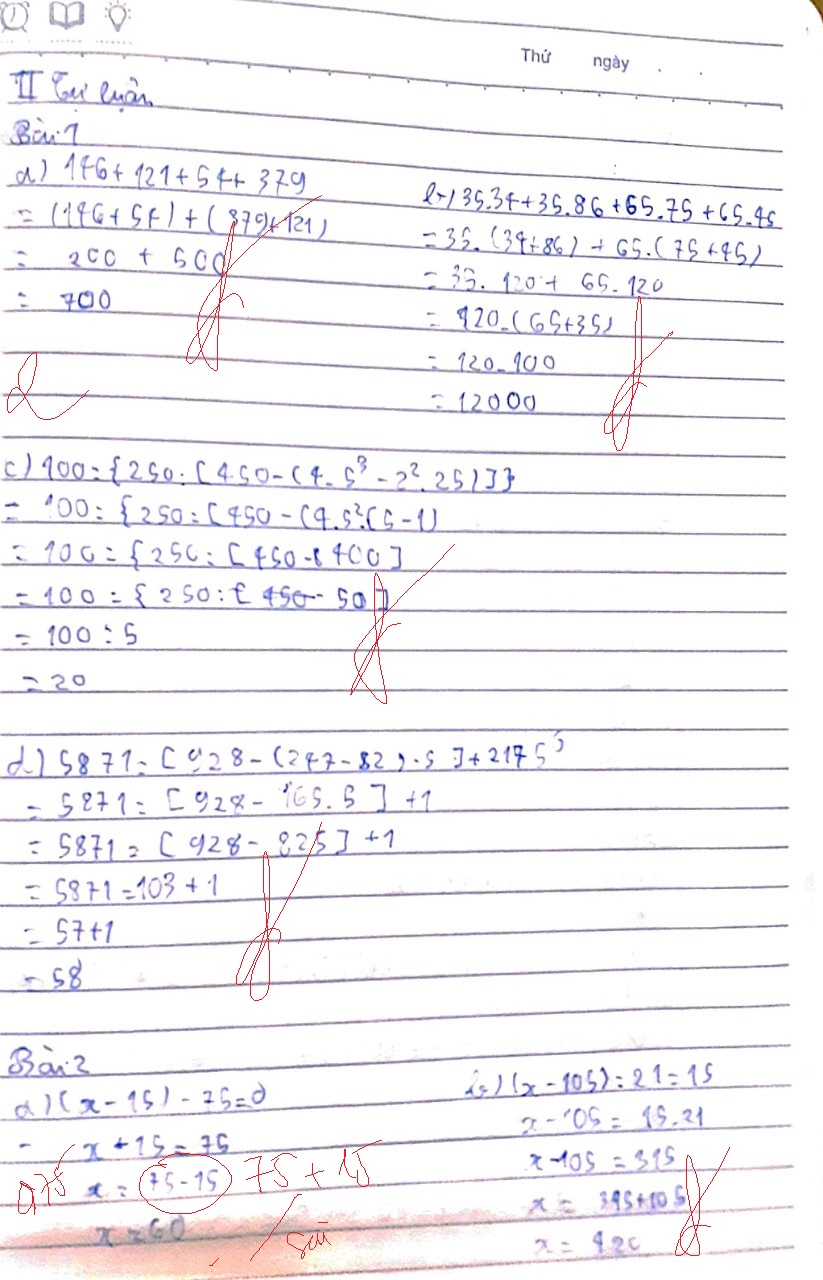 Thứ ngày . .
II Tự luận
Bài 1
a) 146 + 121 + 54 + 379
= (146 + 54) + (379 + 121)
= 200 + 500
= 700
b) 35.34 + 35.86 + 65.75 + 65.45
= 35.(34+86) + 65.(75+45)
= 35.120 + 65.120
= 120.(65+35)
= 120.100
= 12000
c) 100:{250:[450-(4.5³-2².25)]}
= 100:{250:[450-(4.5²(5-1)
= 100:{250:[450-400]
= 100:{250:[450-50]
= 100:5
= 20
d) 5871:[928-(247-82).5]+2175
= 5871:[928-165.5] +1
= 5871:[928-825] +1
= 5871:103+1
= 57+1
= 58
Bài 2
a) (x-15)-75=0
- x+15=75
x = 75-15 75+15
x = 60
0,75
sai
b) (x-105):21=15
x-105 = 15.21
x-105 = 315
x = 315+105
x = 420